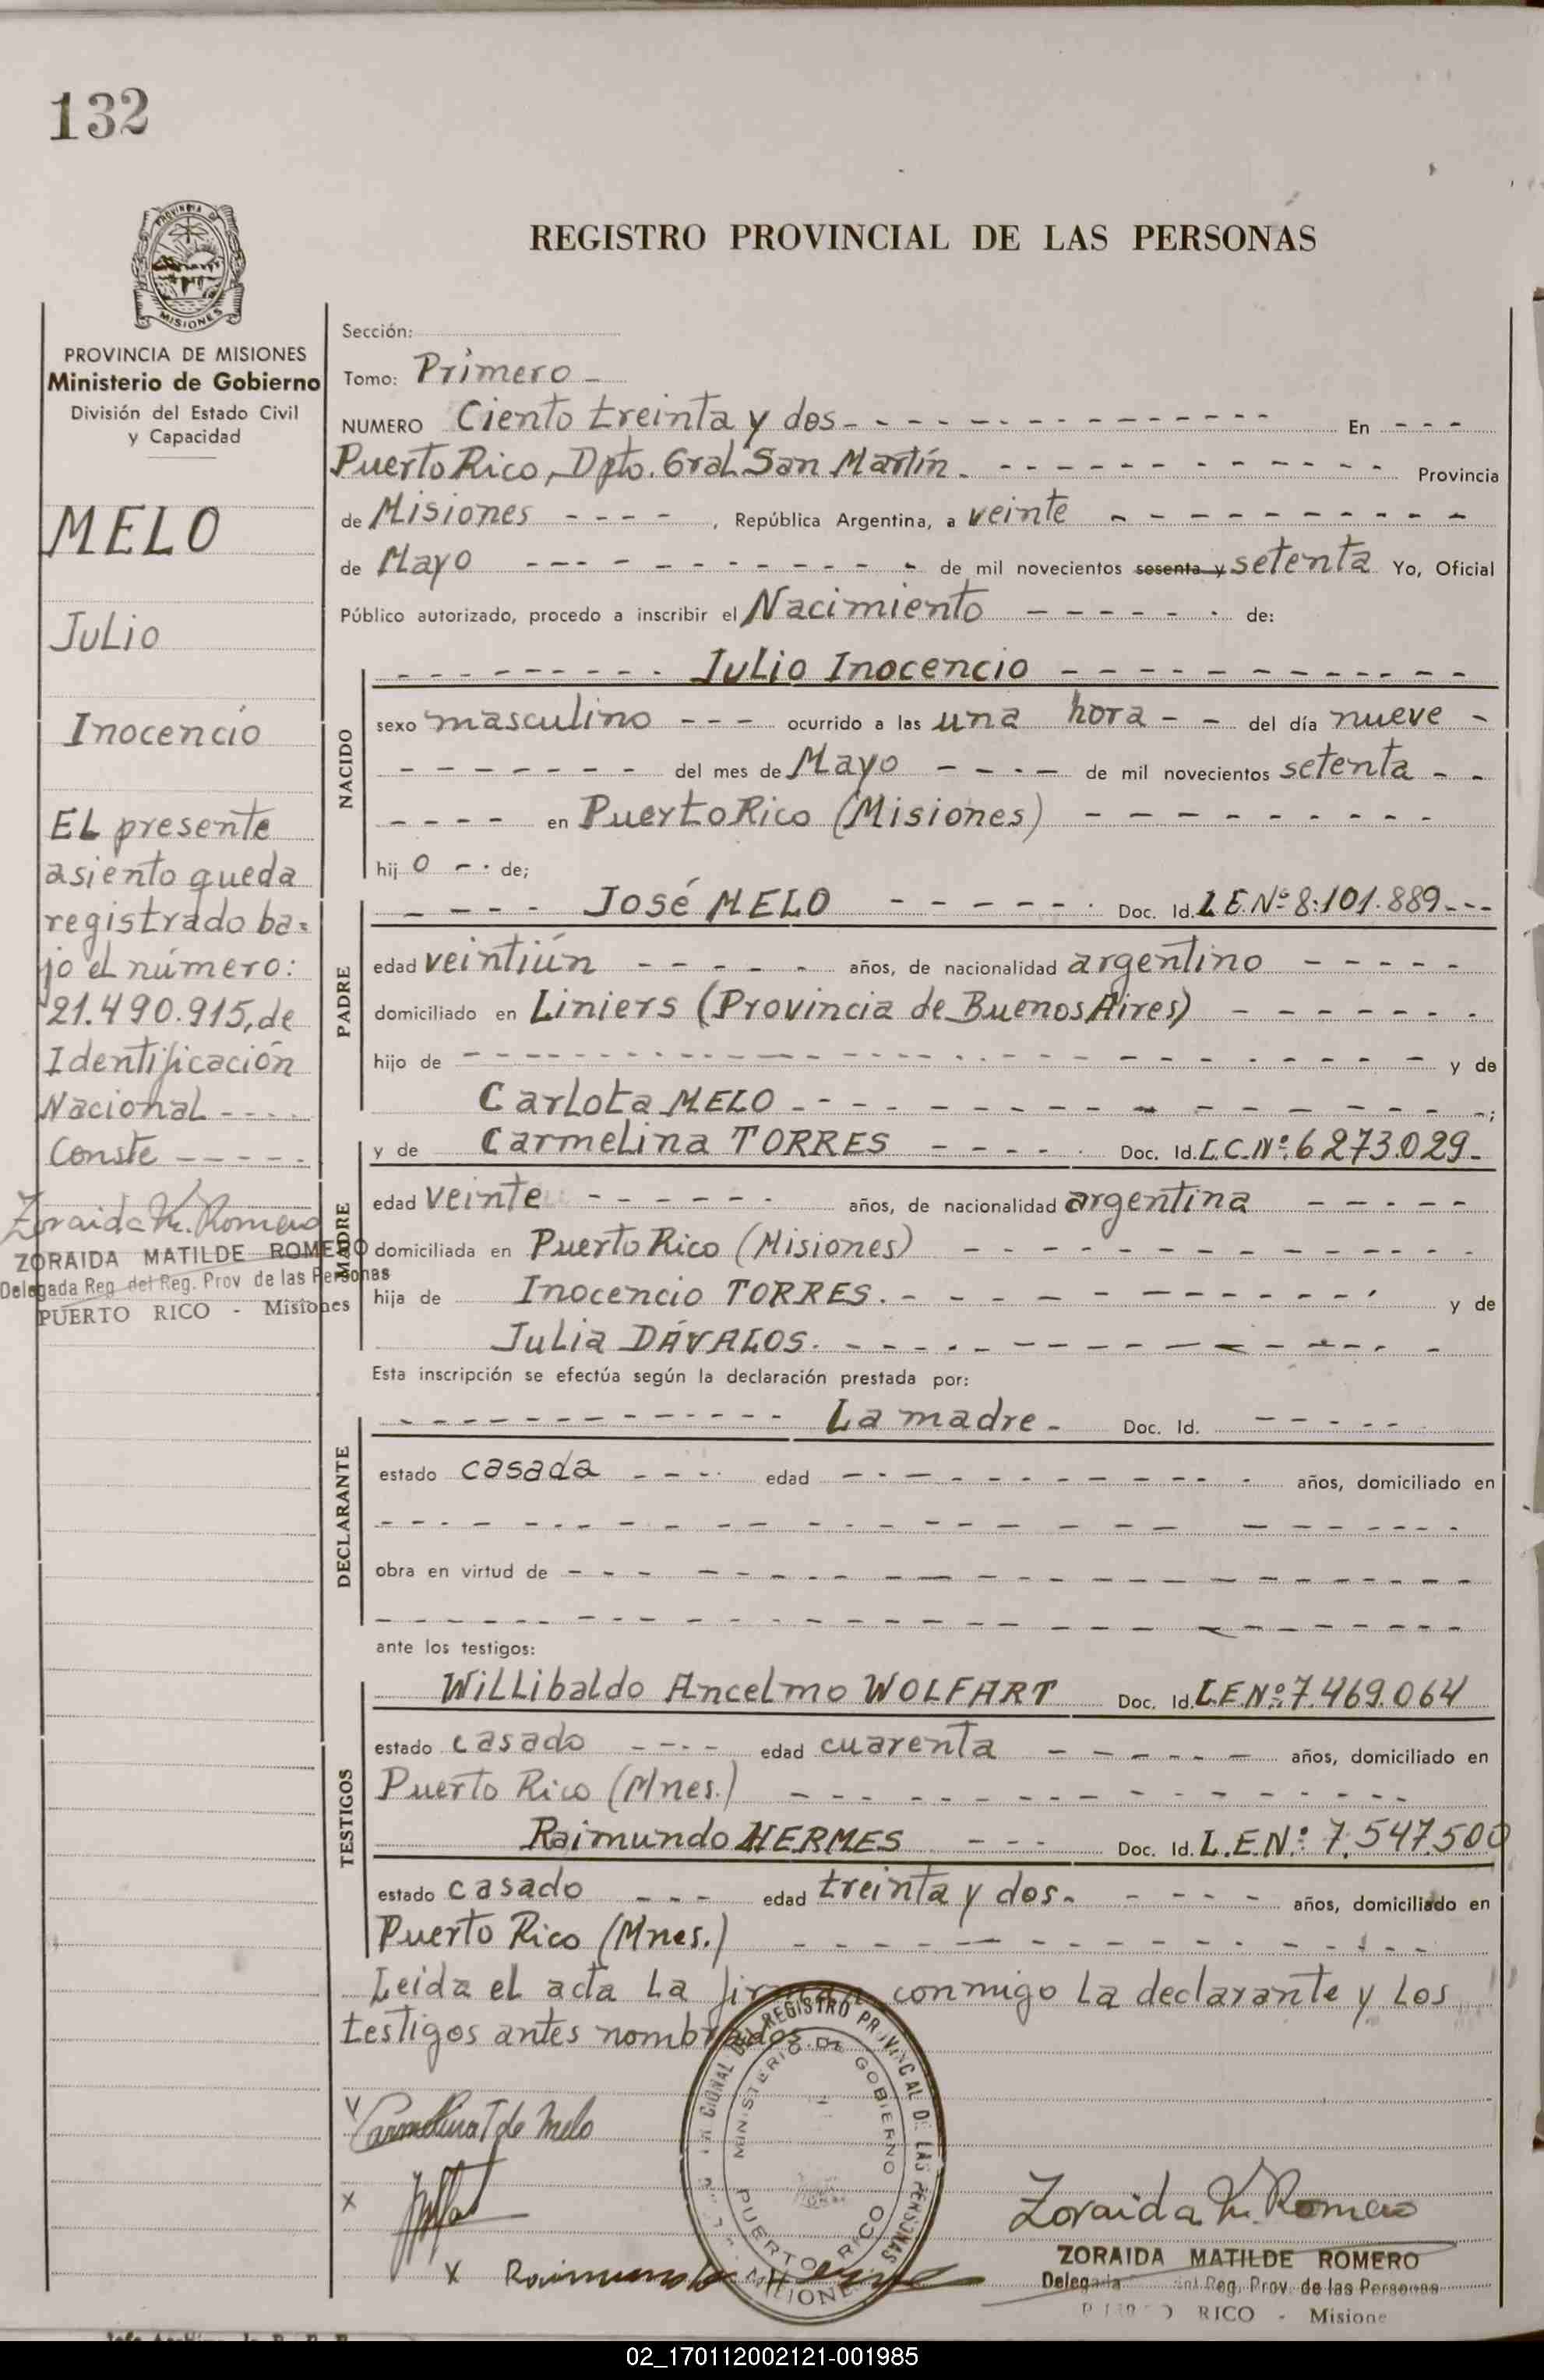 132
PROVINCIA DE MISIONES
PROVINCIA DE MISIONES
Ministerio de Gobierno
División del Estado Civil
y Capacidad
MELO
Julio
Inocencio
El presente
asiento queda
registrado ba=
jo el número:
21.490.915, de
Identificación
Nacional ----
Conste -----
Zoraida M. Romero
ZORAIDA MATILDE ROMERO
Delegada Reg. del Reg. Prov de las Personas
PUERTO RICO - Misiones
REGISTRO PROVINCIAL DE LAS PERSONAS
Sección:
Tomo: Primero -
NUMERO Ciento treinta y dos - - - En - - -
Puerto Rico, Dpto. Gral. San Martín. - - - Provincia
de Misiones - - - -, República Argentina, a veinte - - -
de Mayo - - - de mil novecientos sesenta y setenta Yo, Oficial
Público autorizado, procedo a inscribir el Nacimiento - - - de:
NACIDO
- - - Julio Inocencio - - -
sexo masculino - - - ocurrido a las una hora - - del día nueve -
- - - del mes de Mayo - - - de mil novecientos setenta - -
- - - - en Puerto Rico (Misiones) - - -
hij o - - de;
PADRE
- - - - José MELO - - - Doc. Id. L.E.Nº 8.101.889 - - -
edad veintiún - - - años, de nacionalidad argentino - - -
domiciliado en Liniers (Provincia de Buenos Aires) - - -
hijo de - - - y de
Carlota MELO - - - ;
MADRE
y de Carmelina TORRES - - - Doc. Id. L.C.Nº 6.273.029 -
edad veinte - - - años, de nacionalidad argentina - - -
domiciliada en Puerto Rico (Misiones) - - -
hija de Inocencio TORRES. - - - y de
Julia DÁVALOS. - - -
Esta inscripción se efectúa según la declaración prestada por:
DECLARANTE
- - - La madre - Doc. Id. - - -
estado casada - - - edad - - - años, domiciliado en
- - -
obra en virtud de - - -
- - -
ante los testigos:
TESTIGOS
Willibaldo Ancelmo WOLFART Doc. Id. L.E.Nº 7.469.064
estado casado - - - edad cuarenta - - - años, domiciliado en
Puerto Rico (Mnes.) - - -
Raimundo HERMES - - - Doc. Id. L.E.Nº 7.547.500
estado casado - - - edad treinta y dos - - - años, domiciliado en
Puerto Rico (Mnes.) - - -
Leida el acta la firman conmigo la declarante y los
testigos antes nombrados.
REGISTRO PROVINCIAL DE LAS PERSONAS
MINISTERIO DE GOBIERNO
PUERTO RICO
MISIONES
Carmelina T de Melo
X
X Raimundo Hermes
Zoraida M. Romero
ZORAIDA MATILDE ROMERO
Delegada Reg. Prov. de las Personas
PUERTO RICO - Misione
02_170112002121-001985